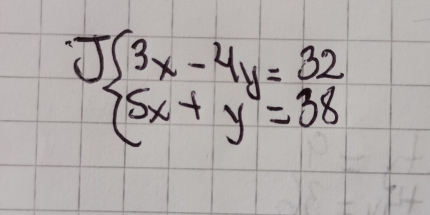 J { 3x - 4y = 32
5x + y = 38